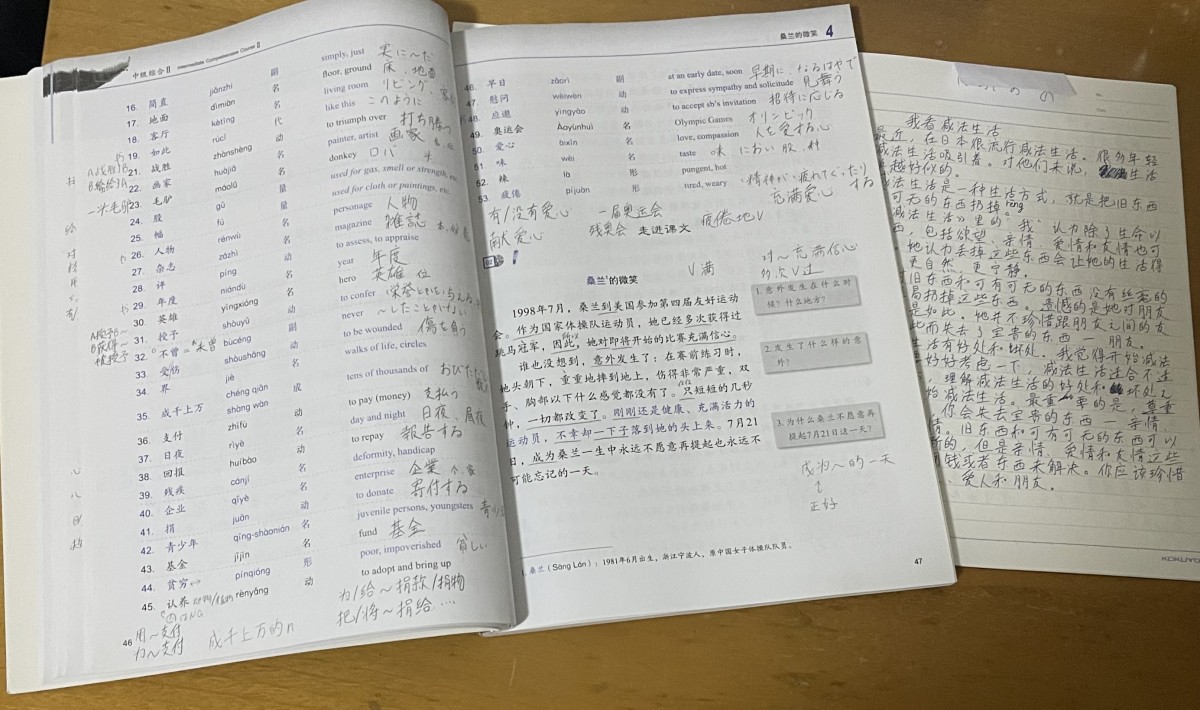 中级综合Ⅱ Intermediate Comprehensive Course Ⅱ
16. 简直 jiǎnzhí 副 simply, just 実に〜だ
17. 地面 dìmiàn 名 floor, ground 床、地面
18. 客厅 kètīng 名 living room リビング
19. 如此 rúcǐ 代 like this このように
21. 战胜 zhànshèng 动 to triumph over 打ち勝つ
A战胜B
B输给A
22. 画家 huàjiā 名 painter, artist 画家
一次毛驴
23. 毛驴 máolǘ 名 donkey ロバ
24. 股 gǔ 量 used for gas, smell or strength, etc.
25. 幅 fú 量 used for cloth or paintings, etc.
26. 人物 rénwù 名 personage 人物
27. 杂志 zázhì 名 magazine 雑誌
28. 评 píng 动 to assess, to appraise
29. 年度 niándù 名 year 年度
30. 英雄 yīngxióng 名 hero 英雄 位
31. 授予 shòuyǔ 动 to confer 栄誉とかを与える
32. 不曾 =未曾 bùcéng 副 never 〜したことがない
33. 受伤 shòushāng 动 to be wounded 傷を負う
34. 界 jiè 名 walks of life, circles
35. 成千上万 chéng qiān shàng wàn 成 tens of thousands of おびただしい
36. 支付 zhīfù 动 to pay (money) 支払う
37. 日夜 rìyè 名 day and night 日夜、昼夜
38. 回报 huíbào 动 to repay 報告する
39. 残疾 cánjí 名 deformity, handicap
40. 企业 qǐyè 名 enterprise 企業 个家
41. 捐 juān 动 to donate 寄付する
42. 青少年 qīng-shàonián 名 juvenile persons, youngsters
43. 基金 jījīn 名 fund 基金
44. 贫穷 pínqióng 形 poor, impoverished 貧しい
45. 认养 rènyǎng 动 to adopt and bring up
为/给〜捐款/捐物
把/将〜捐给…
46
用〜支付
为〜支付
成千上万的n
桑兰的微笑 4
46. 早日 zǎorì 副 at an early date, soon 早期に なるはやで
47. 慰问 wèiwèn 动 to express sympathy and solicitude 見舞う
48. 应邀 yìngyāo 动 to accept sb's invitation 招待に応じる
49. 奥运会 Àoyùnhuì 名 Olympic Games オリンピック
50. 爱心 àixīn 名 love, compassion 人を愛する心
51. 味 wèi 名 taste 味 におい
52. 辣 là 形 pungent, hot
53. 疲倦 píjuàn 形 tired, weary
有/没有爱心 一届奥运会 疲倦地V 充满爱心
献爱心 残奥会 走进课文
V满
对〜充满信心
多次V过
桑兰¹的微笑
1998年7月，桑兰到美国参加第四届友好运动
会。作为国家体操队运动员，她已经多次获得过
跳马冠军，因此，她对即将开始的比赛充满信心。
谁也没想到，意外发生了：在赛前练习时，
她头朝下，重重地摔到地上，伤得非常严重，双
手、胸部以下什么感觉都没有了。只短短的几秒
钟，一切都改变了。刚刚还是健康、充满活力的
运动员，不幸却一下子落到她的头上来。7月21
日，成为桑兰一生中永远不愿意再提起也永远不
可能忘记的一天。
1. 意外发生在什么时
候？什么地方？
2. 发生了什么样的意
外？
3. 为什么桑兰不愿意再
提起7月21日这一天？
成为〜的一天
正好
1. 桑兰（Sāng Lán）：1981年6月出生，浙江宁波人，原中国女子体操队队员。
47
我看减法生活
最近，在日本很流行减法生活。很多年轻
减法生活吸引着。对他们来说，生活
越好似的。
减法生活是一种生活方式，就是把旧东西
可无的东西扔掉 rēng
减法生活》里的"我"认为除了生命以
，包括欲望、亲情、爱情和友情也可
她认为丢掉这些东西会让她的生活得
更自然、更宁静。
旧东西和可有可无的东西没有丝毫的
扔掉这些东西。遗憾的是她对朋友
是如此。她并不珍惜跟朋友之间的友
此而失去了宝贵的东西－朋友。
生活有好处和坏处。我觉得开始减法
好好考虑一下，减法生活适合不适
，理解减法生活的好处和坏处之
始减法生活。最重要的是，尊重
你会失去宝贵的东西－亲情
情。旧东西和可有可无的东西可以
新的，但是亲情、爱情和友情这些
用钱或者东西来解决。你应该珍惜
、爱人和朋友。
KOKUYO